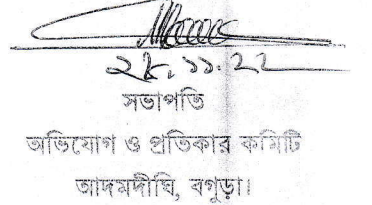 ২৮.১১.২২
সভাপতি
অভিযোগ ও প্রতিকার কমিটি
আদমদীঘি, বগুড়া।